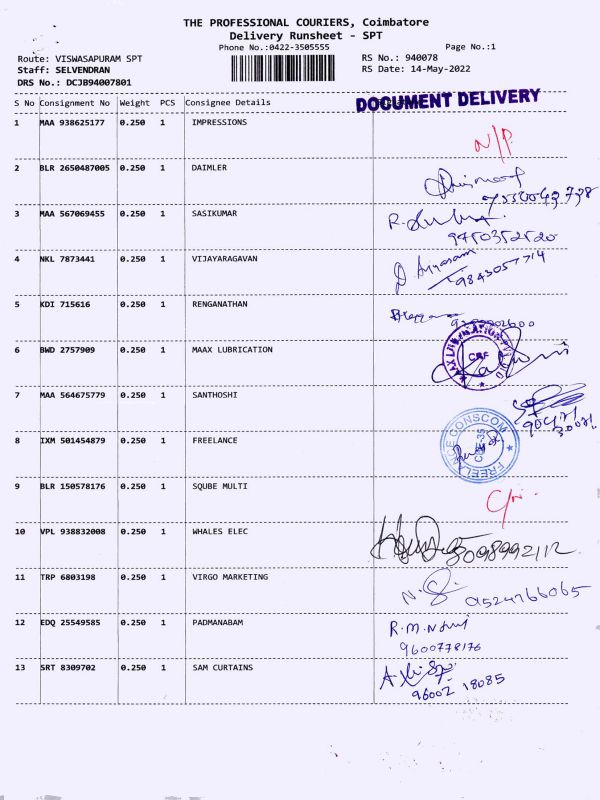 THE PROFESSIONAL COURIERS, Coimbatore
Delivery Runsheet - SPT
Phone No.:0422-3505555
Page No.:1
Route: VISWASAPURAM SPT
RS No.: 940078
Staff: SELVENDRAN
RS Date: 14-May-2022
DRS No.: DCJB94007801
S No Consignment No Weight PCS Consignee Details
DOCUMENT DELIVERY
1 MAA 938625177 0.250 1 IMPRESSIONS
N/P.
2 BLR 2650487005 0.250 1 DAIMLER
3 MAA 567069455 0.250 1 SASIKUMAR
9450352520
4 NKL 7873441 0.250 1 VIJAYARAGAVAN
9843057714
5 KDI 715616 0.250 1 RENGANATHAN
6 BWD 2757909 0.250 1 MAAX LUBRICATION
7 MAA 564675779 0.250 1 SANTHOSHI
8 IXM 501454879 0.250 1 FREELANCE
FREELANCE CONSCOM
CBE-35
9 BLR 150578176 0.250 1 SQUBE MULTI
10 VPL 938832008 0.250 1 WHALES ELEC
9098992112
11 TRP 6803198 0.250 1 VIRGO MARKETING
N.S.
9524766065
12 EDQ 25549585 0.250 1 PADMANABAM
9600778176
13 SRT 8309702 0.250 1 SAM CURTAINS
96002 18085